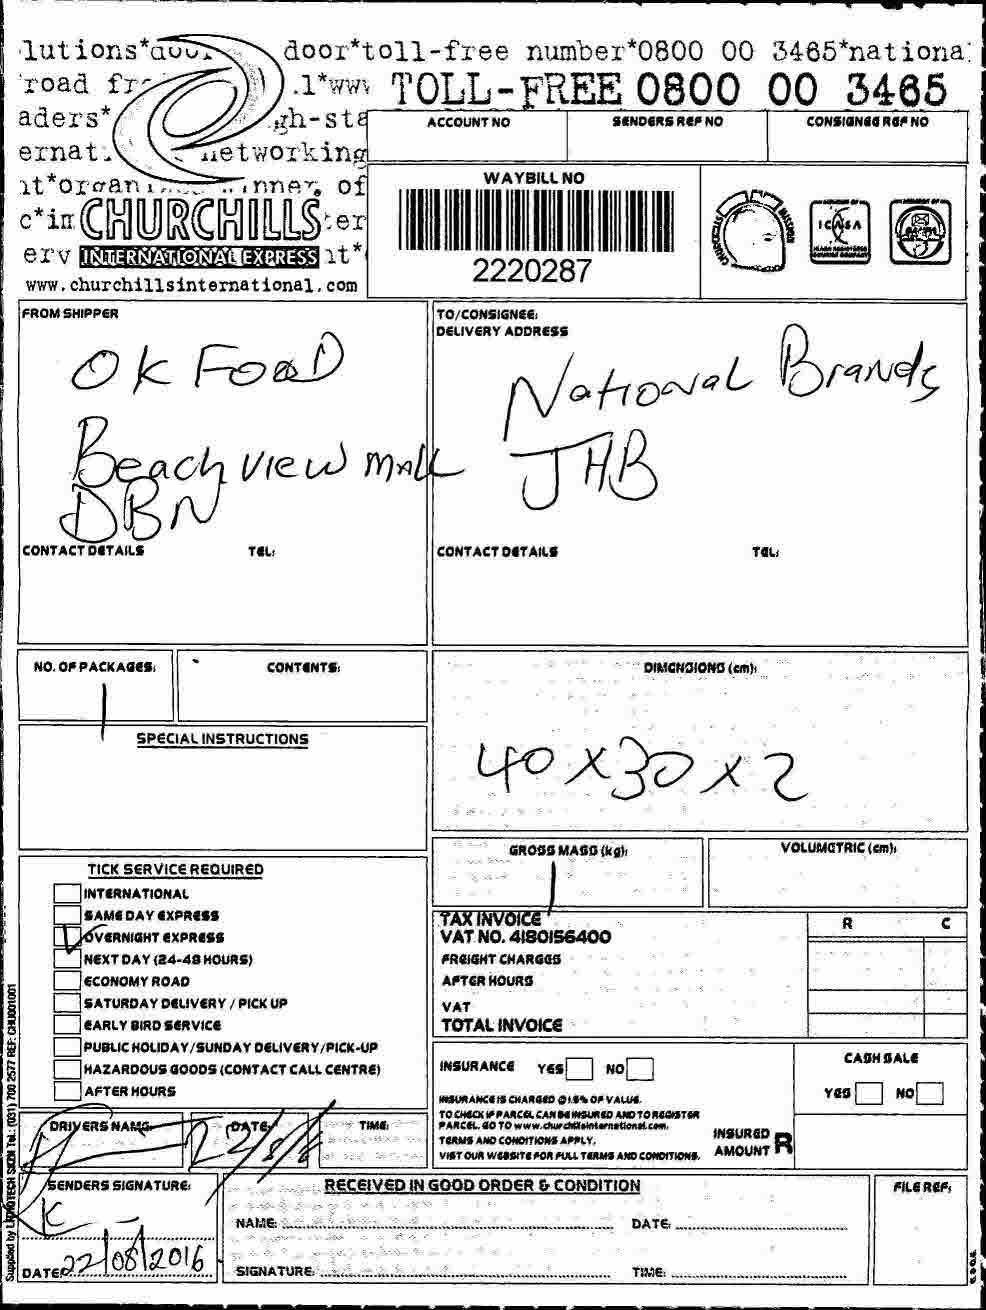 door*toll-free number*0800 00 3465*nationa
road
TOLL-FREE 0800 00 3465
aders*
ACCOUNT NO
SENDERS REF NO
CONSIGNEE REF NO
networking
WAYBILL NO
2220287
CHURCHILLS
INTERNATIONAL EXPRESS
www.churchillsinternational.com
FROM SHIPPER
OK Food
Beach view mall
DBN
CONTACT DETAILS
TEL:
TO/CONSIGNEE:
DELIVERY ADDRESS
National Brands
JHB
CONTACT DETAILS
TEL:
NO. OF PACKAGES:
1
CONTENTS:
DIMENSIONS (cm):
40 x 30 x 2
SPECIAL INSTRUCTIONS
GROSS MASS (kg):
1
VOLUMETRIC (cm):
TICK SERVICE REQUIRED
INTERNATIONAL
SAME DAY EXPRESS
OVERNIGHT EXPRESS
NEXT DAY (24-48 HOURS)
ECONOMY ROAD
SATURDAY DELIVERY / PICK UP
EARLY BIRD SERVICE
PUBLIC HOLIDAY/SUNDAY DELIVERY/PICK-UP
HAZARDOUS GOODS (CONTACT CALL CENTRE)
AFTER HOURS
TAX INVOICE
VAT NO. 4180156400
R
C
FREIGHT CHARGES
AFTER HOURS
VAT
TOTAL INVOICE
INSURANCE YES NO
CASH SALE
YES NO
INSURANCE IS CHARGED @1.5% OF VALUE.
TO CHECK IF PARCEL CAN BE INSURED AND TO REGISTER
PARCEL. GO TO www.churchillsinternational.com.
TERMS AND CONDITIONS APPLY.
VISIT OUR WEBSITE FOR FULL TERMS AND CONDITIONS.
INSURED
AMOUNT R
DRIVERS NAME:
DATE:
TIME:
SENDERS SIGNATURE:
DATE: 22/08/2016
RECEIVED IN GOOD ORDER & CONDITION
NAME:
DATE:
SIGNATURE:
TIME:
FILE REF:
E.&O.E.